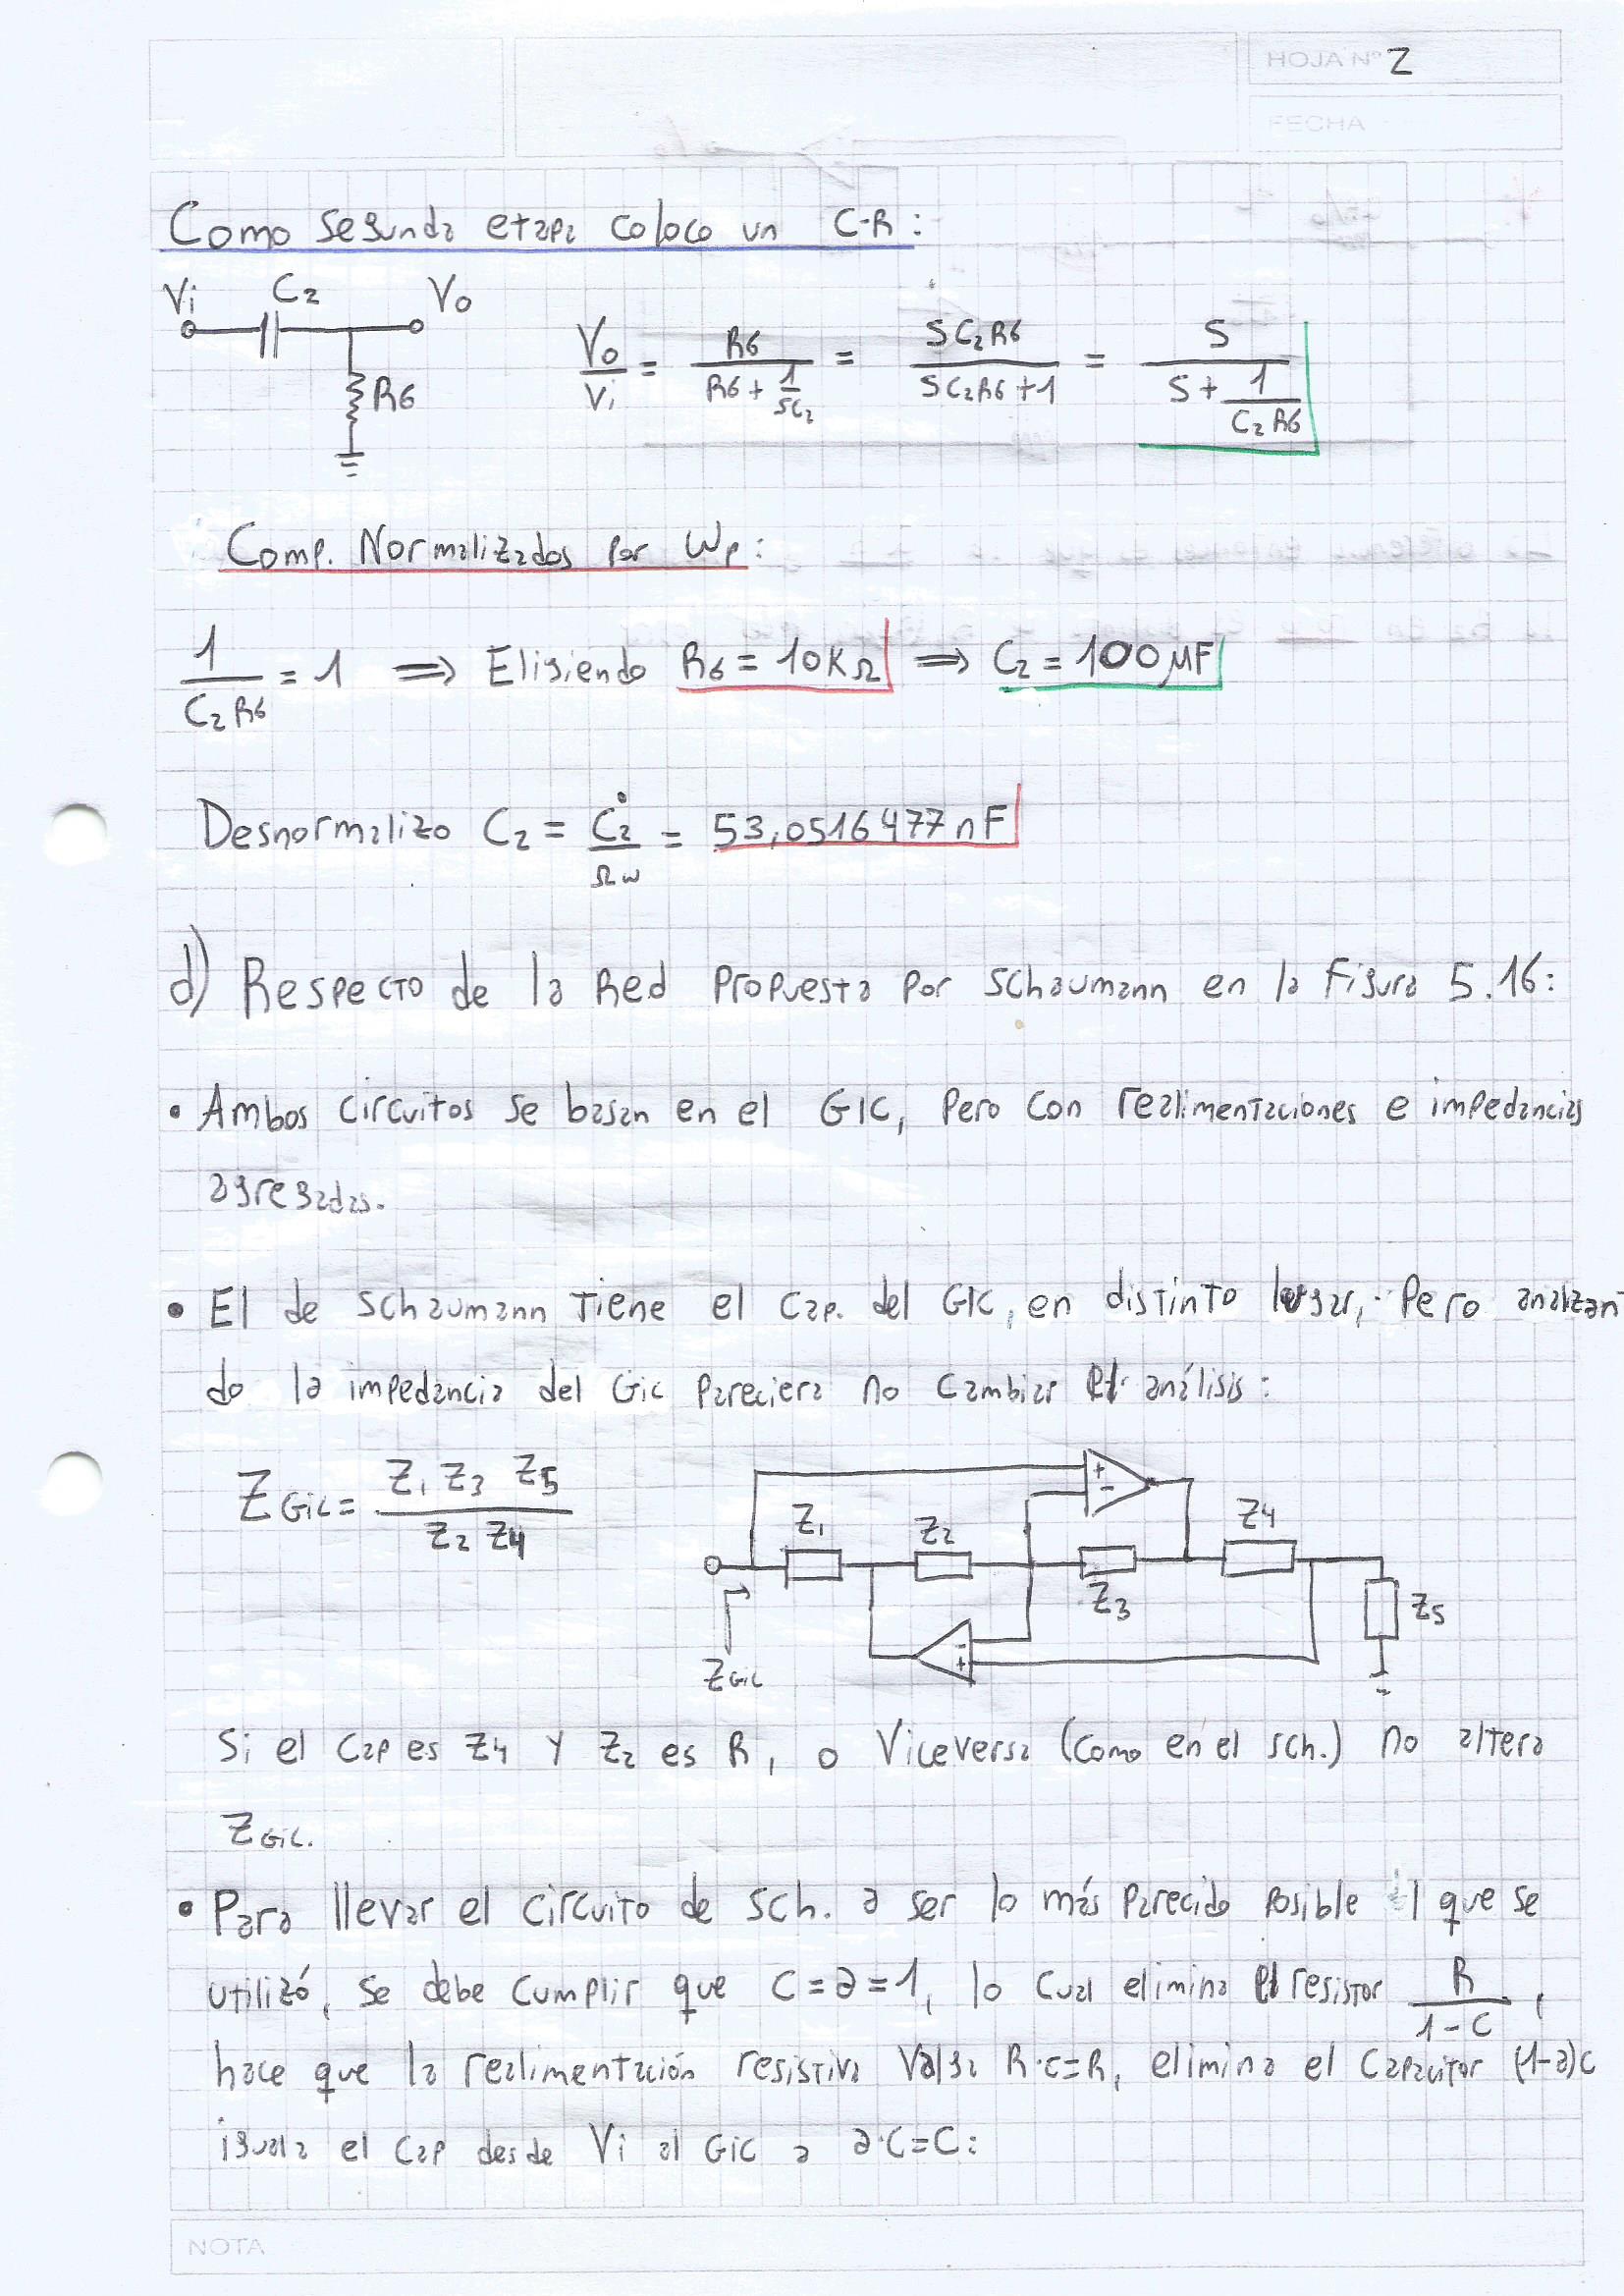 HOJA Nº 2
FECHA
Como segunda etapa coloco un C-R:
Vi C2 Vo
R6
Vo/Vi = R6/(R6 + 1/SC2) = SC2R6/(SC2R6+1) = S/(S + 1/(C2R6))
Comp. Normalizados por Wp:
1/(C2R6) = 1 ⟹ Eligiendo R6 = 10KΩ ⟹ C2 = 100μF
Desnormalizo C2 = C2°/Ωω = 53,0516477nF
d) Respecto de la Red Propuesta por Schaumann en la Figura 5.16:
• Ambos circuitos se basan en el GIC, pero con realimentaciones e impedancias
agregadas.
• El de Schaumann tiene el cap. del GIC, en distinto lugar, pero analizan
do la impedancia del Gic pareciera no cambiar el análisis:
ZGIC = Z1 Z3 Z5 / Z2 Z4
+ -
Z1 Z2 Z3 Z4 Z5
- +
ZGIC
Si el cap es Z4 y Z2 es R, o viceversa (como en el sch.) no altera
ZGIC.
• Para llevar el circuito de sch. a ser lo más parecido posible al que se
utilizó, se debe cumplir que C=a=1, lo cual elimina el resistor R/(1-C),
hace que la realimentación resistiva valga R·c=R, elimina el capacitor (1-a)C
iguala el cap desde Vi al GIC a a·C=C:
NOTA